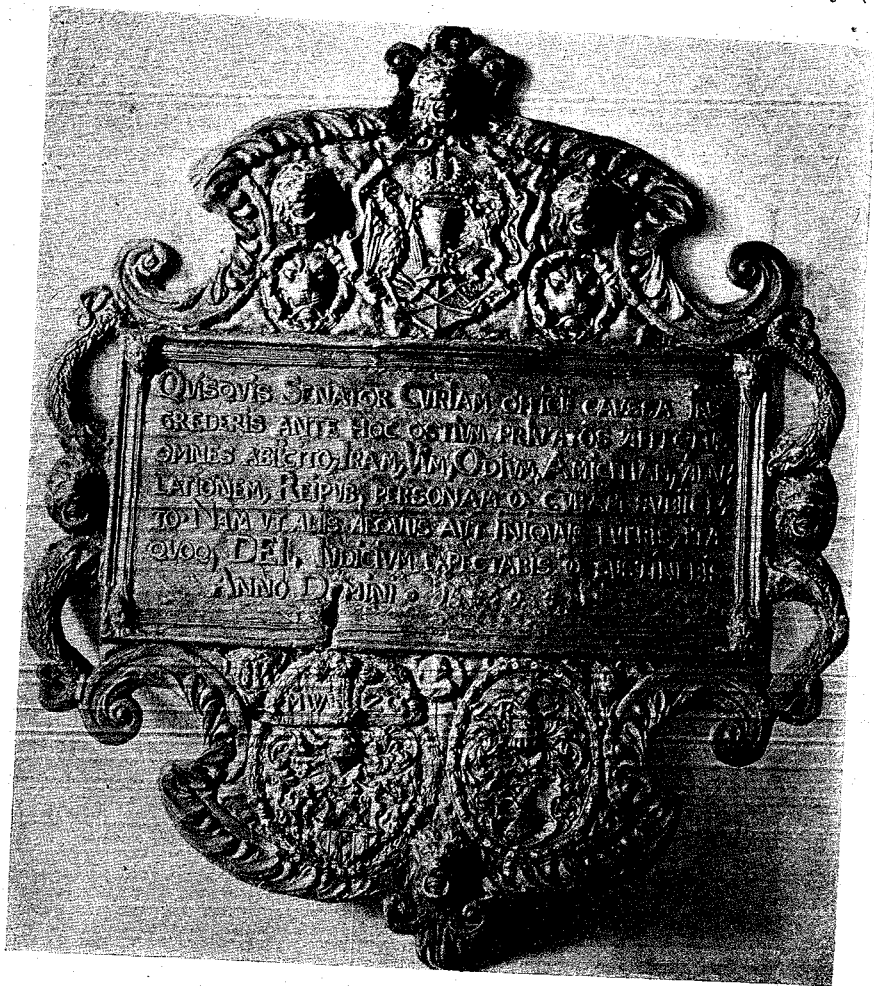 QVISQVIS SENATOR CVRIAM, OFFICII CAVSSA IN
GREDERIS ANTE HOC OSTIVM, PRIVATOS AFFECTVS
OMNES ABIICITO, IRAM, VIM, ODIVM, AMICITIAM,
LATIONEM, REIPVB, PERSONAM CVRAM SVBIICI
TO NAM VT ALIIS AEQVVS AVT INIQVVS FVERIS, ITA
QVOQ, DEI, IVDICIVM EXPECTABIS
ANNO DOMINI